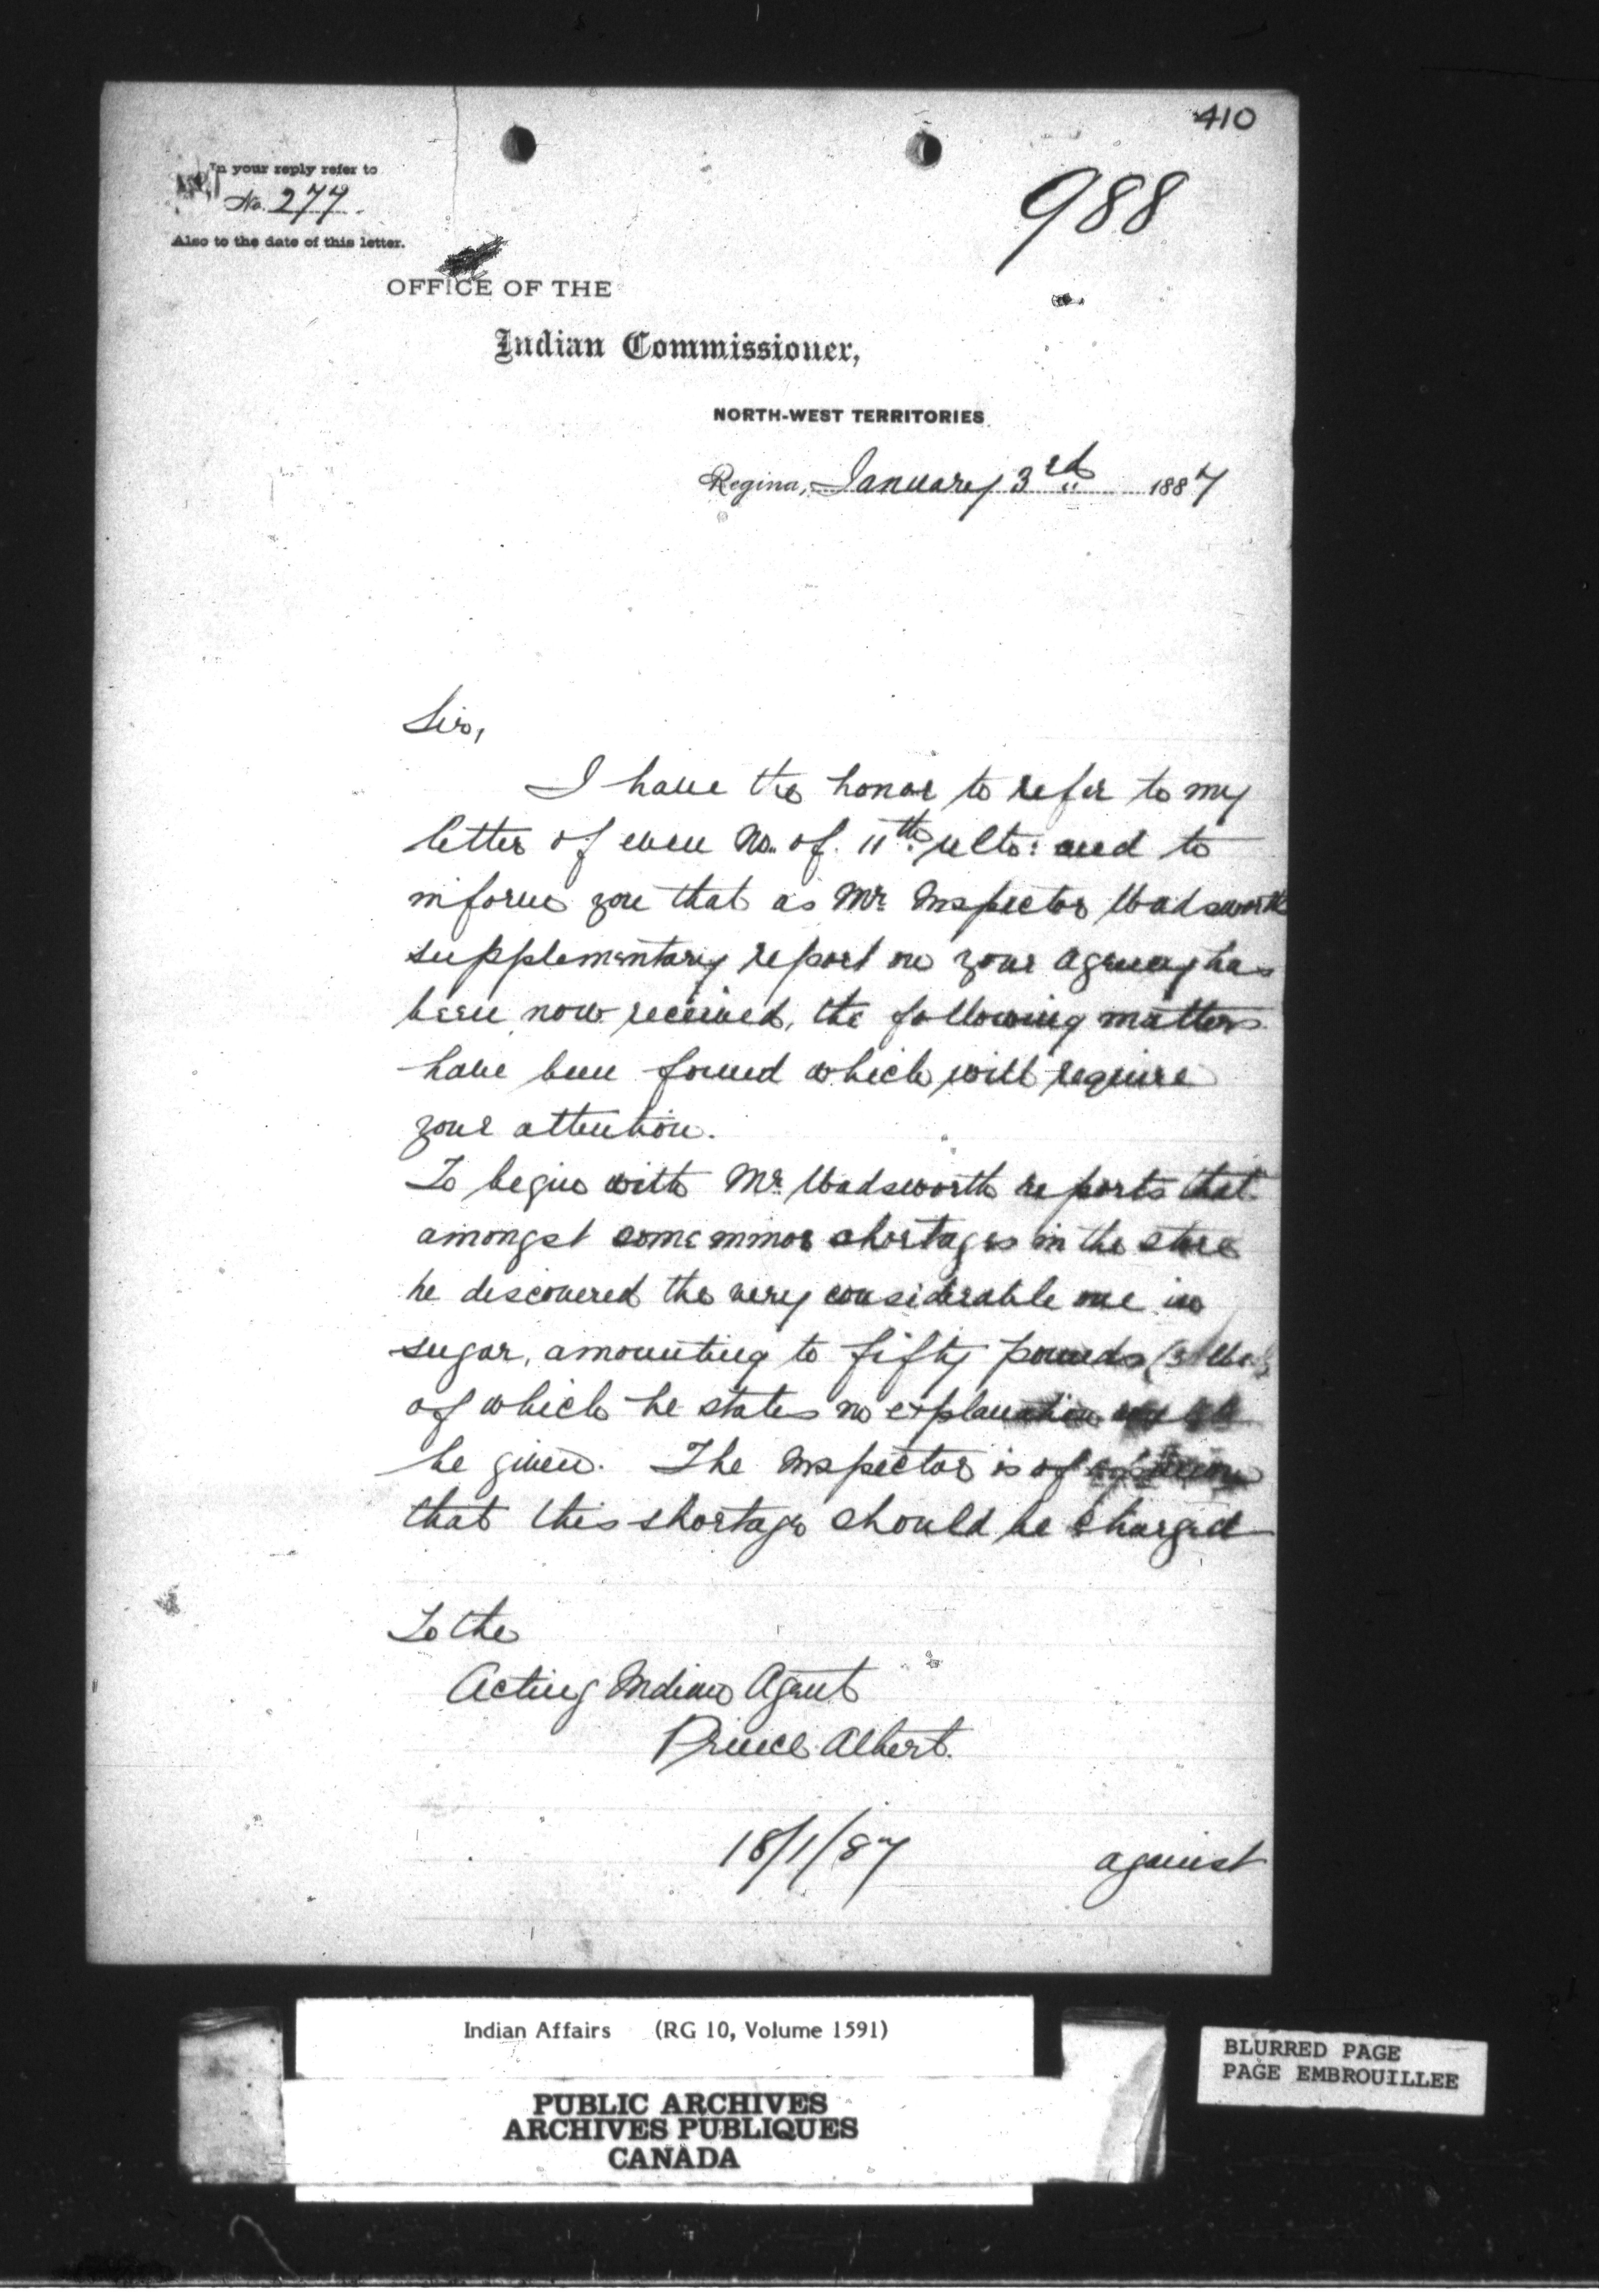 410
In your reply refer to
No. 277.
Also to the date of this letter.
988
OFFICE OF THE
Indian Commissioner,
NORTH-WEST TERRITORIES.
Regina, January 3rd 1887
Sir,
I have the honor to refer to my
letter of even No. of 11th ulto: and to
inform you that as Mr Inspector Wadsworth
supplementary report on your agency has
been now received, the following matters
have been found which will require
your attention.
To begin with Mr Wadsworth reports that
amongst some minor shortages in the store
he discovered the very considerable one in
sugar, amounting to fifty pounds
of which he states no explanation
be given. The Inspector is of opinion
that this shortage should be charged
To the
Acting Indian Agent
Prince Albert.
18/1/87
against
Indian Affairs (RG 10, Volume 1591)
PUBLIC ARCHIVES
ARCHIVES PUBLIQUES
CANADA
BLURRED PAGE
PAGE EMBROUILLEE